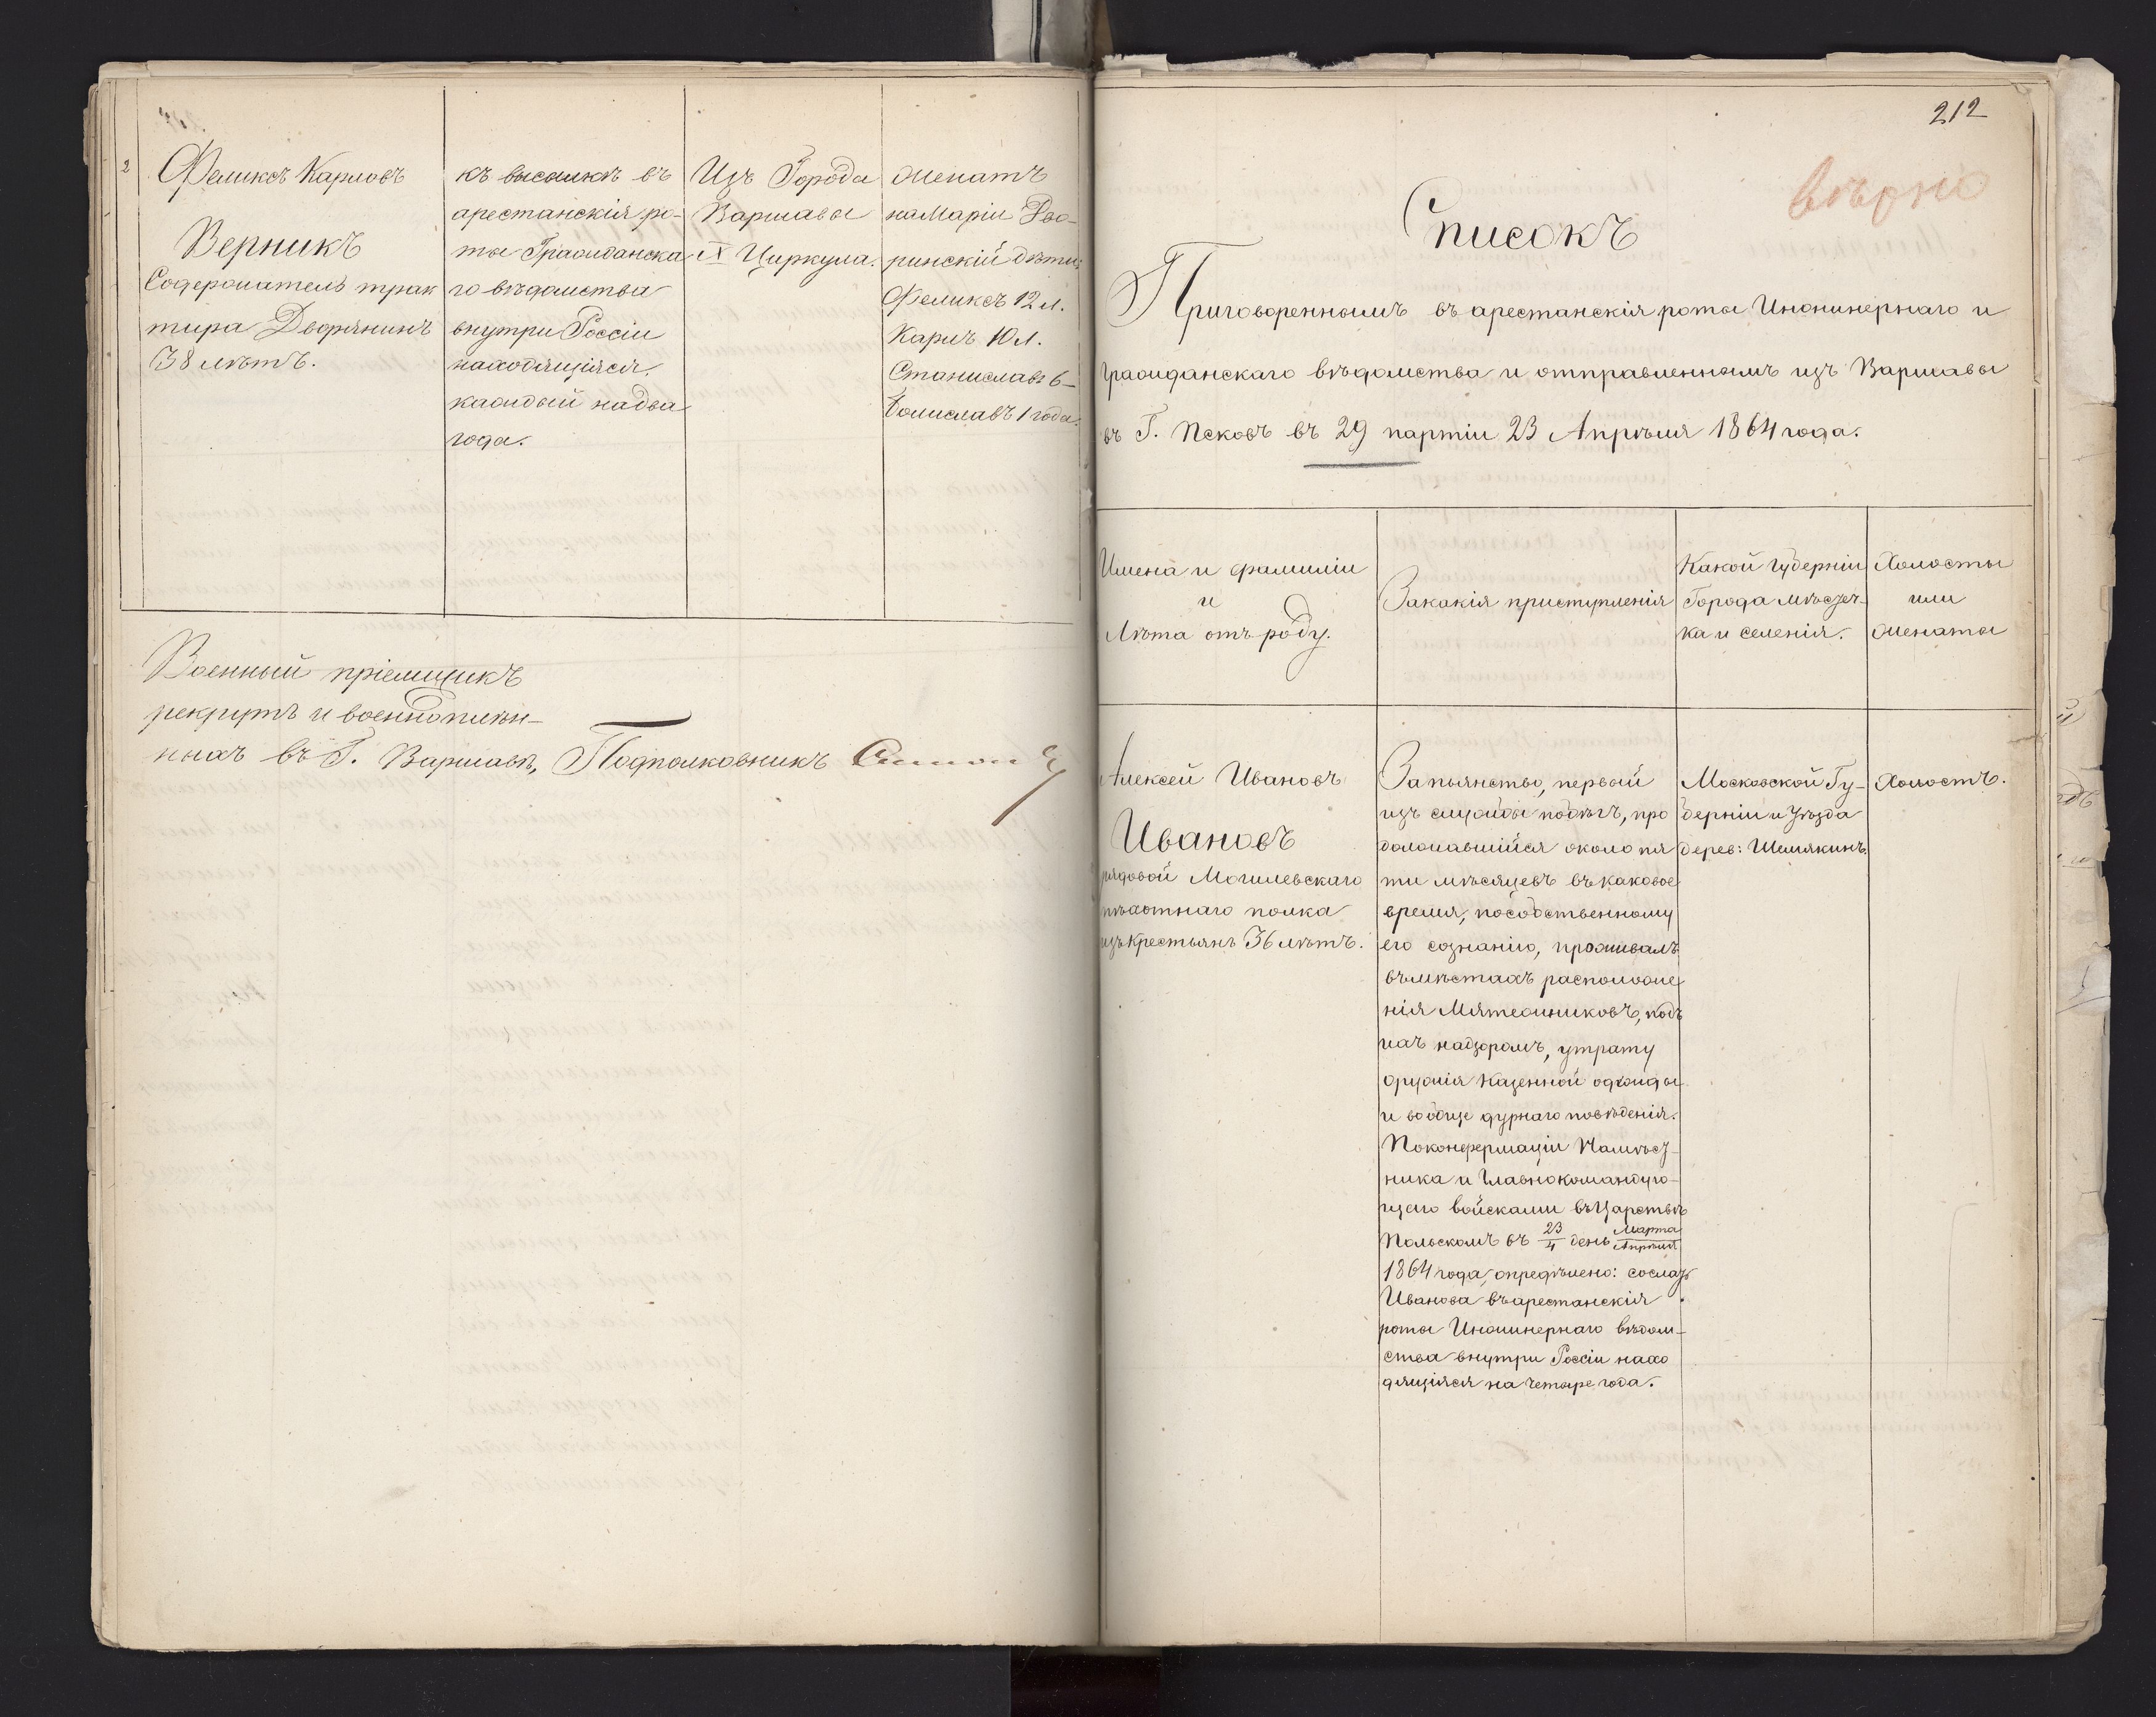 2
Феликсъ Карловъ
Верникъ
Содержатель трак
тира Дворянинъ
38 лѣтъ.
къ высылкѣ въ
арестанскія ро-
ты Гражданска
го вѣдомства
внутри Россіи
находящіяся.
каждый на два
года.
Изъ Города
Варшавы
X Циркула.
женатъ
на Маріи
дѣти:
Феликсъ 12 л.
Карлъ 10 л.
Станиславъ 6-
Болиславъ 1 года.
Военный пріемщикъ
рекрутъ и военноплѣн-
ныхъ въ Г. Варшавѣ, Подполковникъ
212
вѣрно
Списокъ
Приговореннымъ въ арестанскія роты Инжинернаго и
гражданскаго вѣдомства и отправленнымъ изъ Варшавы
въ Г. Псковъ въ 29 партіи 23 Апрѣля 1864 года.
Имена и фамиліи
и
Лѣта отъ роду.
За какія приступленія
Какой губерніи
Города мѣстеч-
ка и селенія.
Холосты
или
женаты
Алексей Ивановъ
Ивановъ
рядовой Могилевскаго
пѣхотнаго полка
изъ крестьянъ 36 лѣтъ.
За пьянство, первый
изъ службы побѣгъ, про
должавшійся около пя
ти мѣсяцевъ въ каковое
время, по собственному
его сознанію, проживалъ
въ мѣстахъ расположе
нія Мятежниковъ, подъ
ихъ надзоромъ, утрату
оружія казенной одежды
и вообще дурнаго повѣденія.
По конфермаціи Намѣст-
ника и Главнокомандую-
щаго войсками въ Царствѣ
Польскомъ въ 23/4 день Марта/Апрѣля
1864 года, опредѣлено: сослать
Иванова въ арестанскія
роты Инжинернаго вѣдом-
ства внутри Россіи нахо
дящіяся на четыре года.
Московской Гу-
берніи и Уѣзда
дерев: Шемякинъ.
Холостъ.